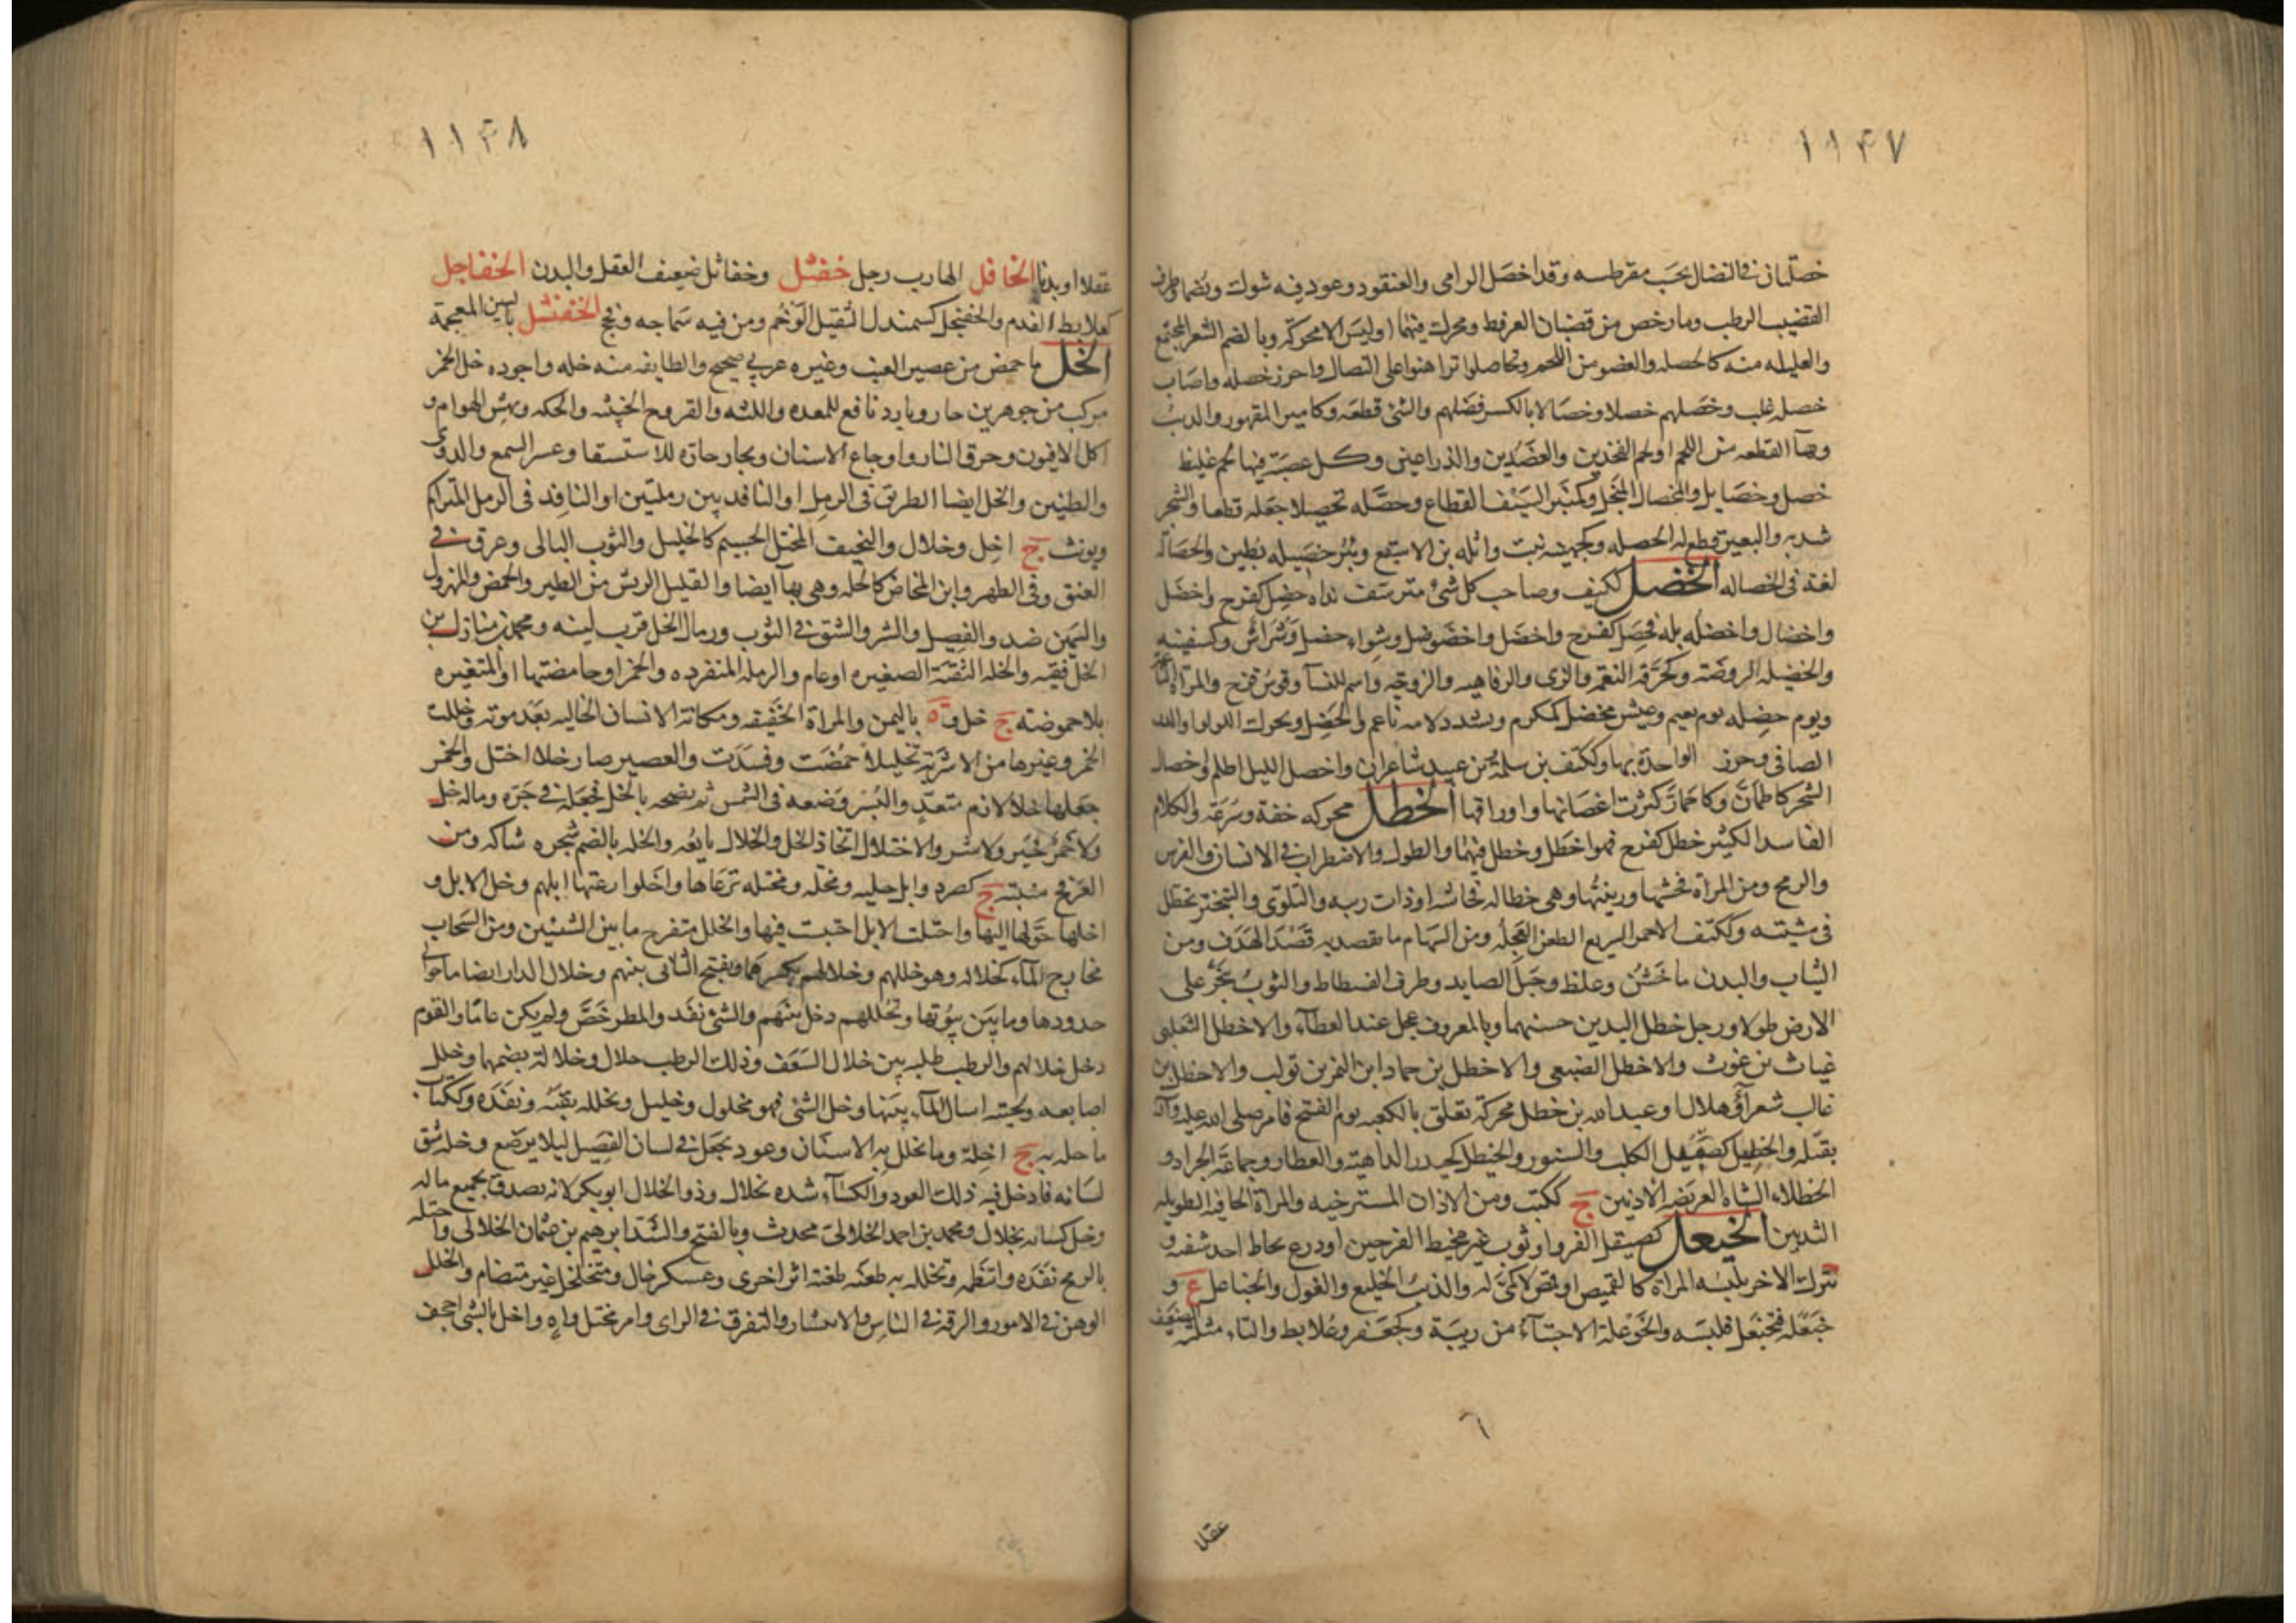 ١١۴٧
خصلتان في النضال يحسب مقرطسه وقد اخصل الرامي والعنقود وعود فيه شوك ويضم وطرف
القضيب الرطب وما رخص من قضبان العرفط ويحرك فيهما او ليس الا محركة وبالضم الشعر المجتمع
والقليله منه كالخصله والعضو من اللحم وتخاصلوا تراهنوا على النضال واحرز خصله واصاب
خصله غلب وخصلهم خصلا وخصالا بالكسر فضلهم والشئ قطعه وكامير المقهور والذنب
وبهآ القطعه من اللحم او لحم الفخذين والعضدين والذراعين وكل عصبة فيها لحم غليظ
خصل وخصايل والمخصال المنجل وكمنبر السيف القطاع وخصله تخصيلا جعله قطعا والشجر
شذبه والبعير قطع له الخصله وكجهينه بنت واثله بن الاسقع وبنو خصيله بطين والخصالة
لغة في الحصاله الخضل ككتف وصاحب كل شئ مترشف نداه خضل كفرح واخضل
واخضال واخضله بله فخضل كفرح واخضل واخضوضل وشواء خضل وشراش وكسفينه
والخضيله الروضة وكحزقه النعمه والرى والرفاهيه والزوجه واسم للنسآ وقوس قزح والمرآة
ويوم خضله يوم نعيم وعيش مخضل كمكرم وتشدد لامه ناعم والخضل ويحرك اللولو او الدر
الصافي وخرز الواحدة بهآ وككتف بن سلمة وبن عبيد شاعران واخضل الليل اظلم واخضال
الشجر كاطمأن وكاحمار كثرت اغصانها واوراقها الخطل محركه خفة وسرعة والكلام
الفاسد الكثير خطل كفرح فهو اخطل وخطل فيهما والطول والاضطراب في الانسان والفرس
والرمح ومن المراة فحشها وريبتها وهي خطاله فحاشه او ذات ريبه والتلوى والتبختر تخطل
في مشيته وككتف الاحمق السريع الطعن العجله ومن السهام ما يقصد به قصد الهدف ومن
الثياب والبدن ما خشن وغلظ وحبل الصايد وطرف الفسطاط والثوب ينجر على
الارض طولا ورجل خطل اليدين حسنهما وبالمعروف عجل عند العطآء والاخطل التغلبى
غياث بن غوث والاخطل الضبعي والاخطل بن حماد ابن النمر بن تولب والاخطل بن
غالب شعرآء وهلال وعبد الله بن خطل محركة تعلق بالكعبه يوم الفتح فامر صلى الله عليه وآله
بقتله والخيطل كصيقل الكلب والسنور والخيطل كحيدر الداهية والعطار وجماعة الجراد و
الخطلاء الشاة العريضه الاذنين ج ككتب ومن الاذان المسترخيه والمراة الجافيه الطويله
الثديين الخيعل كصيقل الفرو او ثوب غير مخيط الفرجين او درع يخاط احد شقيه و
يترك الاخر يلبسه المراة كالقميص او قميص لا كمى له والذئب الخليع والغول والخياعل ع و
خيعله فتخيعل فلبسه والخوعلة الاختبآء من ريبة وكجعفر وعلابط والتاء مثلثة الضعيف
٦
عقلا
١١۴٨
عقلا او بدنا الخافل الهارب رجل خفثل وخفاثل ضعيف العقل والبدن الخفاجل
كعلابط الفدم والخفنجل كسمندل الثقيل الوخم ومن فيه سماجه وفحج الخفنشل بالشين المعجمة
الخل ما حمض من عصير العنب وغيره عربي صحيح والطايفه منه خله واجوده خل الخمر
مركب من جوهرين حار وبارد نافع للمعده واللثه والقروح الخبيثه والحكه ونهش الهوام و
اكل الافيون وحرق النار واوجاع الاسنان وبخار حاره للاستسقا وعسر السمع والدوى
والطنين والخل ايضا الطريق في الرمل او النافذ بين رملتين او النافذ في الرمل المتراكم
ويونث ج اخل وخلال والنحيف المختل الجسيم كالخليل والثوب البالى وعرق في
العنق وفى الظهر وابن المخاض كالخله وهي بهآ ايضا والقليل الريش من الطير والحمض والمهزول
والسمين ضد والفصيل والشر والشق في الثوب ورمال الخل قرب لينه ومحمد بن منازل بن
الخل فقيه والخله الثقبة الصغيره او عام والرمله المنفرده والخمر او حامضتها او المتغيره
بلا حموضته ج خل وة باليمن والمراة الخفيفه ومكانة الانسان الخاليه بعد موته وخللت
الخمر وغيرها من الاشربة تخليلا حمضت وفسدت والعصير صار خلا اختل والخمر
جعلها خلا لازم متعد والبسر وضعه في الشمس ثم نضحه بالخل فجعله في جره وماله خل
ولا خمر خير ولا شر والاختلال اتخاذ الخل والخلال بايعه والخله بالضم شجره شاكه ومن
العرفج منبته ج كصرد وابل خليه ومخله ومختله ترعاها واخلوا رعتها ابلهم وخل الابل و
اخلها حولها اليها واختلت الابل احتبست فيها والخلل منفرج ما بين الشيئين ومن السحاب
مخارج المآء كخلاله وهو خللهم وخلالهم بكسرهما ويفتح الثانى بينهم وخلال الدار ايضا ما حوالى
حدودها وما بين بيوتها وتخللهم دخل بينهم والشئ نفذ والمطر خص ولم يكن عاما والقوم
دخل خلالهم والرطب طلبه بين خلال السعف وذلك الرطب خلال وخلالة بضمهما وخلل
اصابعه ولحيته اسال المآء بينها وخل الشئ فهو مخلول وخليل وتخلله ثقبه ونفذه وككتاب
ما خله به ج اخلة وما تخلل به الاسنان وعود يجعل في لسان الفصيل ليلا يرضع وخله شق
لسانه فادخل فيه ذلك العود والكسآء شده بخلال وذو الخلال ابو بكر لانه تصدق بجميع ماله
وخل كسائه بخلال ومحمد بن احمد الخلالى محدث وبالفتح والشد ابرهيم بن عثمان الخلالى واختله
بالرمح نفذه وانتظمه وتخلله به طعنه طعنة اثر اخرى وعسكر خال ومتخلخل غير متضام والخلل
الوهن في الامور والرقة في الناس والانتشار والتفرق في الراى وامر مختل واه واخل بالشئ اجحف